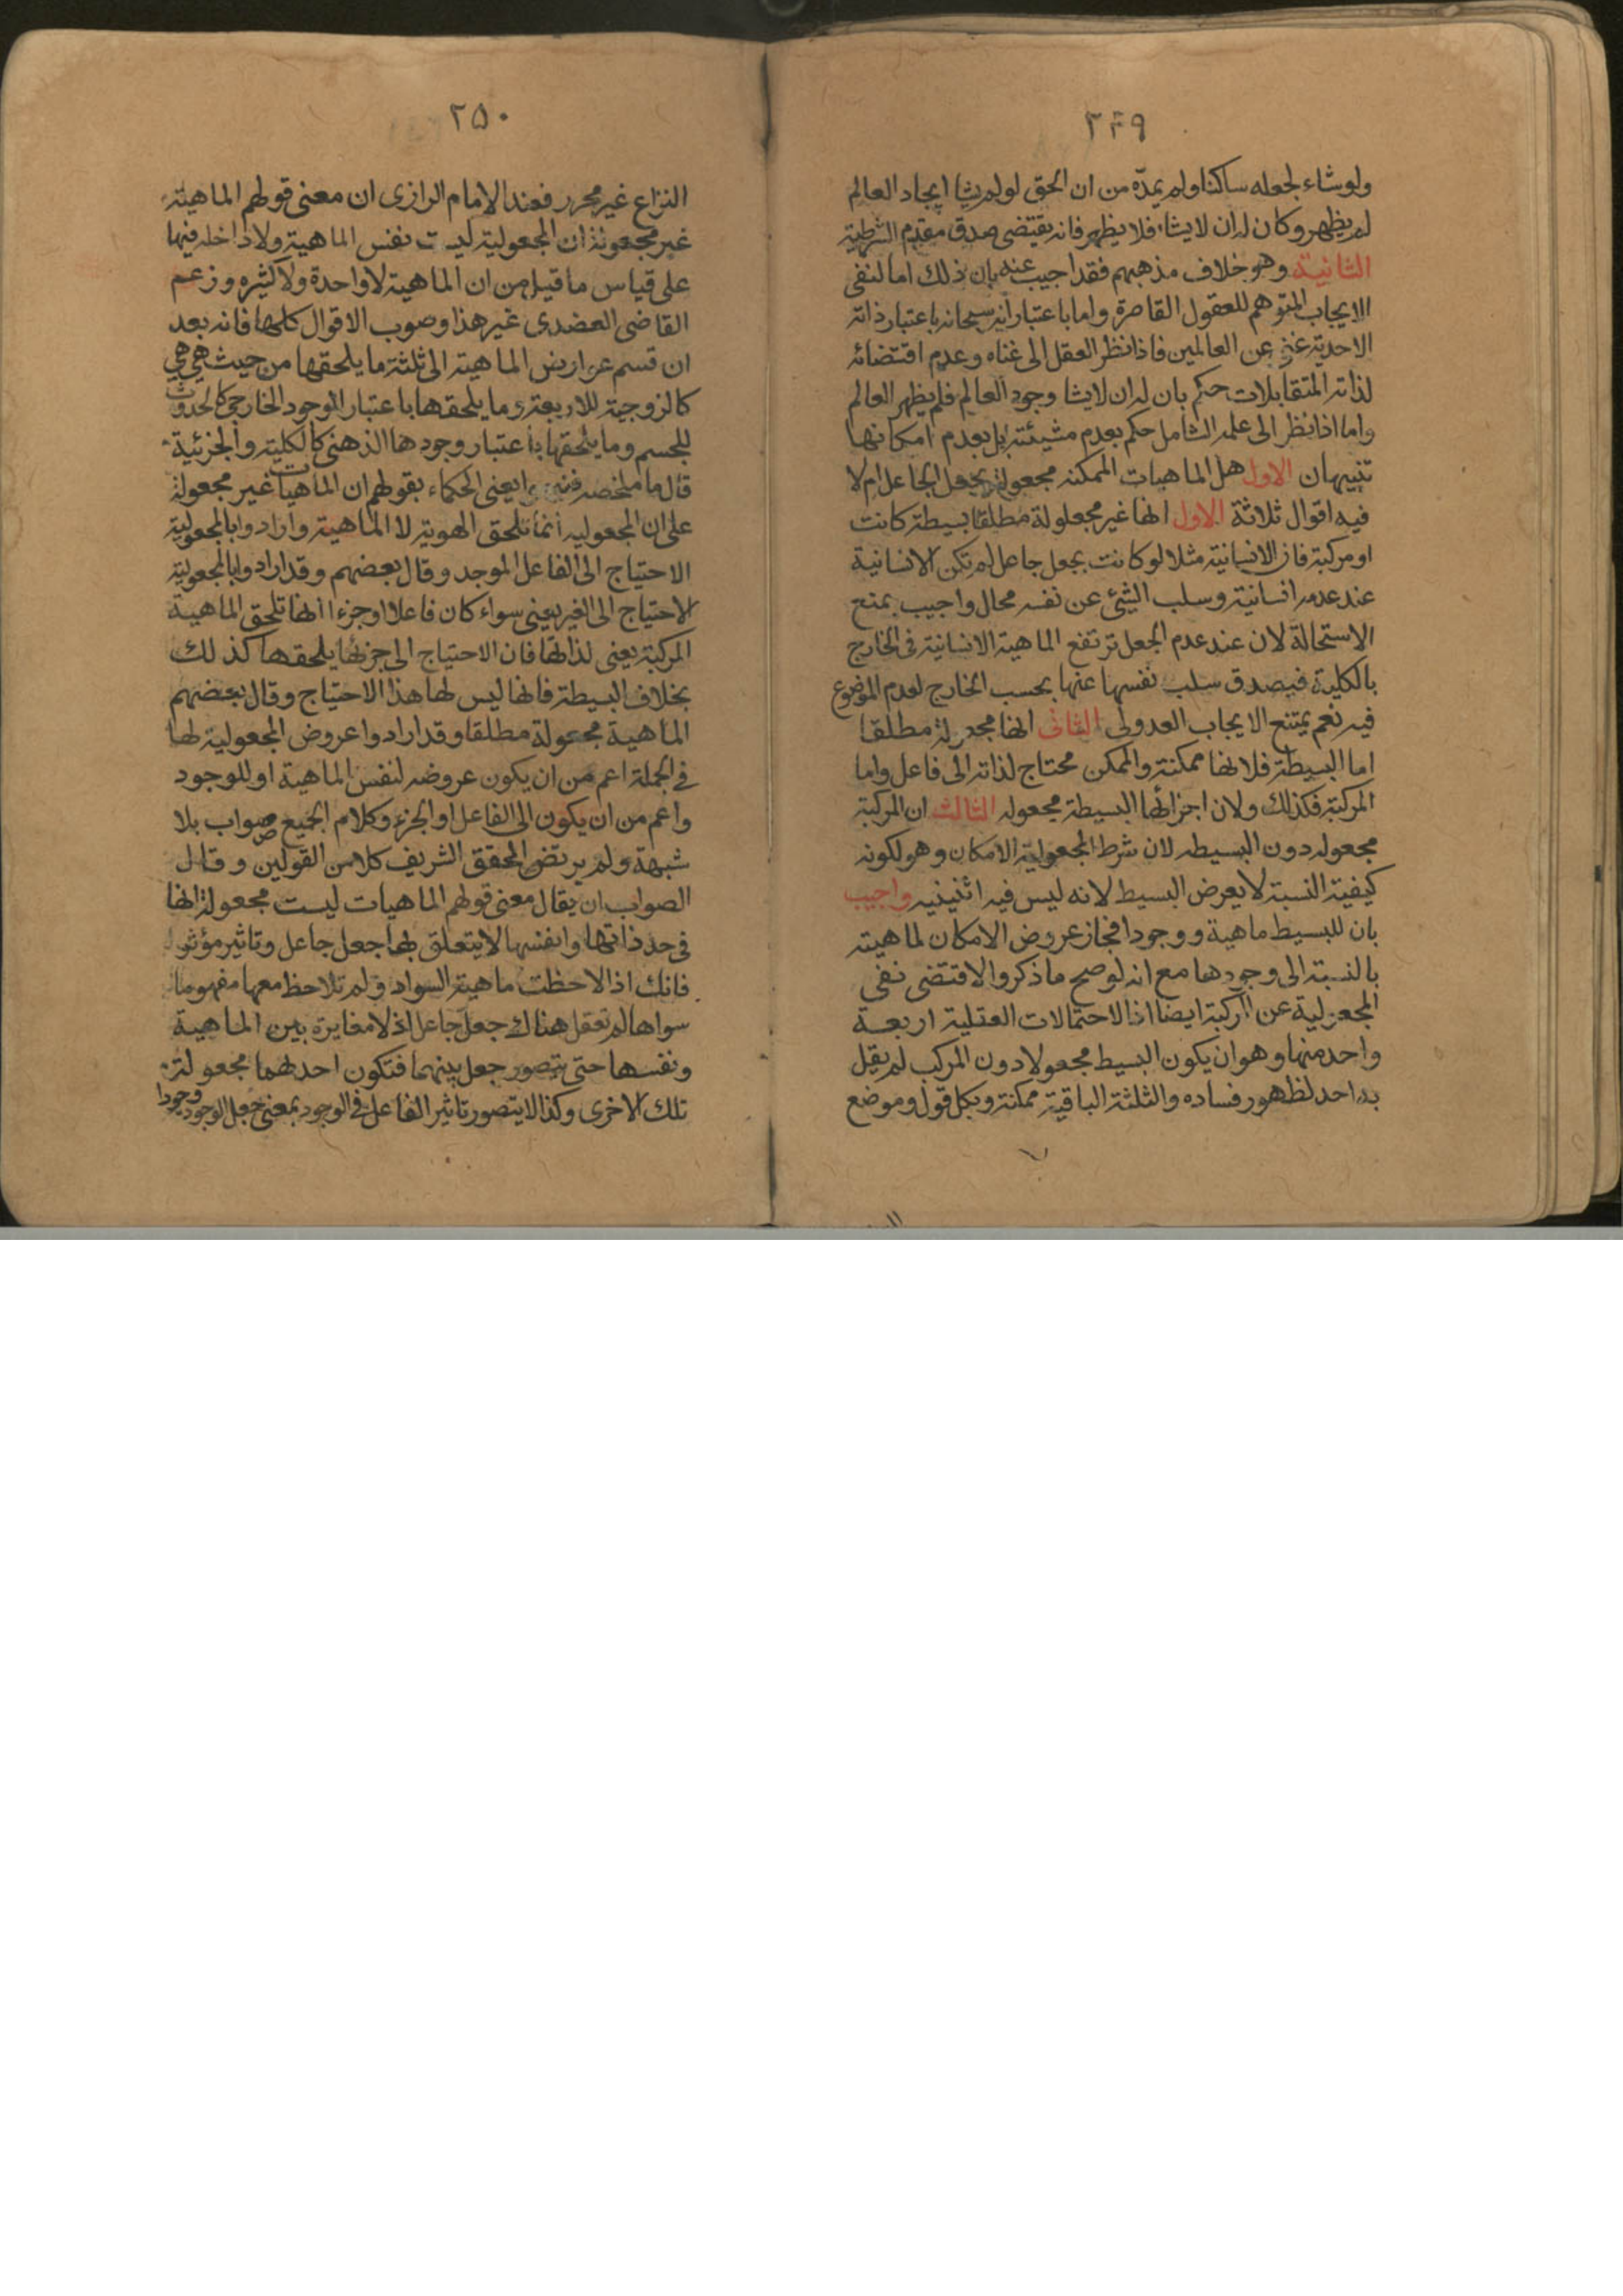 ٢٤٩
ولو شاء لجعله ساكنا ولم يمدّه من ان الحق لو لم يشا ايجاد العالم
لم يظهر وكان له ان لا يشاء فلا يظهر فانه يقتضى صدق مقدم الشرطية
الثانية وهو خلاف مذهبهم فقد اجيب عنه بان ذلك اما لنفى
الايجاب المتوهم للعقول القاصرة واما باعتبار انه سبحانه باعتبار ذاته
الاحدية غنى عن العالمين فاذا نظر العقل الى غناه وعدم اقتضائه
لذاته المتقابلات حكم بان له ان لا يشا وجود العالم فلم يظهر العالم
واما اذا نظر الى علمه الشامل حكم بعدم مشيئته بل بعدم امكانها
تنبيهان الاول هل الماهيات الممكنه مجعولة بجعل الجاعل ام لا
فيه اقوال ثلاثة الاول انها غير مجعلولة مطلقا بسيطة كانت
او مركبة فان الانسانية مثلا لو كانت بجعل جاعل لم تكن الانسانية
عند عدمه انسانية وسلب الشئ عن نفسه محال واجيب بمنع
الاستحالة لان عند عدم الجعل ترتفع الماهية الانسانية فى الخارج
بالكلية فيصدق سلب نفسها عنها بحسب الخارج لعدم الموضوع
فيه نعم يمتنع الايجاب العدولى الثانى انها مجعولة مطلقا
اما البسيطة فلانها ممكنة والممكن محتاج لذاته الى فاعل واما
المركبة فكذلك ولان اجزائها البسيطة مجعوله الثالث ان المركبة
مجعوله دون البسيطه لان شرط المجعولية الامكان وهو لكونه
كيفية النسبة لا يعرض البسيط لانه ليس فيه اثنينيه واجيب
بان للبسيط ماهية ووجودا فجاز عروض الامكان لماهيته
بالنسبة الى وجودها مع انه لو صح ما ذكروا لاقتضى نفى
المجعولية عن المركبة ايضا اذ الاحتمالات العقلية اربعة
واحد منها وهو ان يكون البسيط مجعولا دون المركب لم يقل
به احد لظهور فساده والثلثة الباقية ممكنة وبكل قول وموضع
٢٥٠
النزاع غير محرر فعند الامام الرازى ان معنى قولهم الماهية
غير مجعولة ان المجعولية ليست نفس الماهية ولا داخله فيها
على قياس ما قيل من ان الماهية لا واحدة ولا كثيره وزعم
القاضى العضدى غير هذا وصوب الاقوال كلها فانه بعد
ان قسم عوارض الماهية الى ثلثة ما يلحقها من حيث هى هى
كالزوجية للاربعة وما يلحقها باعتبار الوجود الخارجى كالحدوث
للجسم وما يلحقها باعتبار وجودها الذهنى كالكلية والجزئية
قال ما ملخصه يعنى الحكماء بقولهم ان الماهيات غير مجعولة
على ان المجعوليه انما تلحق الهوية لا الماهية وارادوا بالمجعولية
الاحتياج الى الفاعل الموجد وقال بعضهم وقد ارادوا بالمجعولية
الاحتياج الى الغير يعنى سواء كان فاعلا او جزءا انها تلحق الماهية
المركبة يعنى لذاتها فان الاحتياج الى جزئها يلحقها كذلك
بخلاف البسيطة فانها ليس لها هذا الاحتياج وقال بعضهم
الماهية مجعولة مطلقا وقد ارادوا عروض المجعولية لها
فى الجملة اعم من ان يكون عروضه لنفس الماهية او للوجود
واعم من ان يكون الى الفاعل او الجزء وكلام الجميع صواب بلا
شبهة ولم يرتض المحقق الشريف كلا من القولين وقال
الصواب ان يقال معنى قولهم الماهيات ليست مجعولة انها
فى حد ذاتها وانفسها لا يتعلق بها جعل جاعل وتاثير مؤثر
فانك اذا لاحظت ماهية السواد ولم تلاحظ معها مفهوما
سواها لم تعقل هناك جعل جاعل اذ لا مغايرة بين الماهية
ونفسها حتى يتصور جعل بينهما فتكون احدهما مجعولة
تلك الاخرى وكذا لا يتصور تاثير الفاعل فى الوجود بمعنى جعل الوجود وجودا